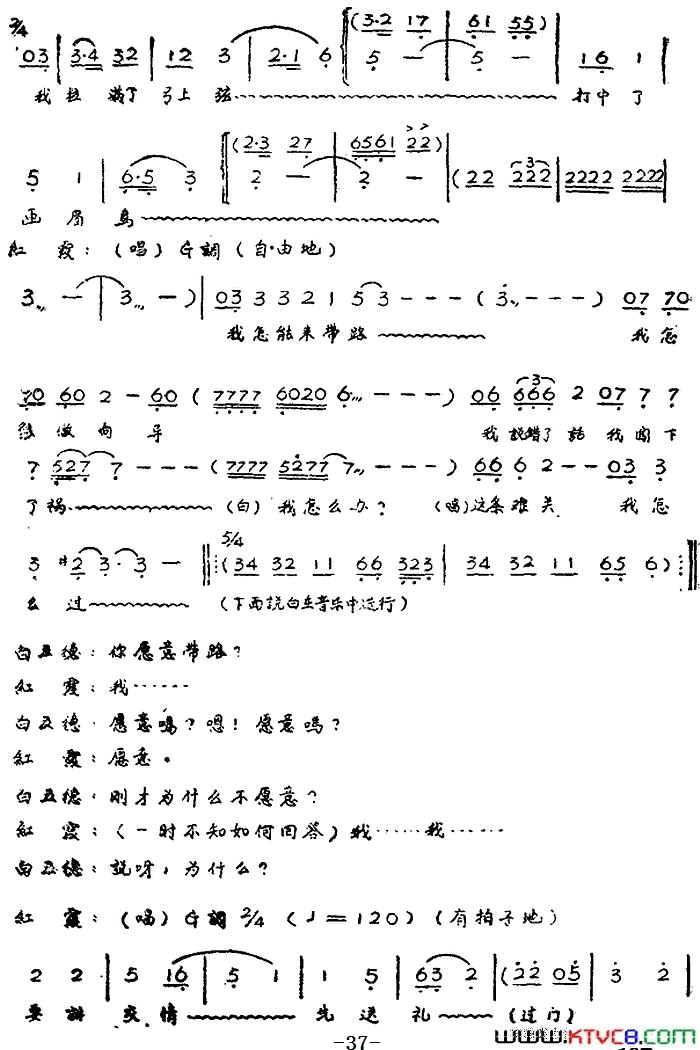 2/4
03 | 3·4 32 | 12 3 | 2·1 6 | (3·2 17 | 61 55) | 16 1 |
5 — | 5 —
我拉 满了 弓上 弦 打中 了
5 1 | 6·5 3 | (2·3 27 | 6561 22) | (22 222 | 2222 2222
2 — | 2 —
画眉 鸟
紅霞：（唱）G調（自由地）
3 — | 3 —) | 03 3 3 2 1 5 3 — — — (3 — — —) 07 70
我怎能来带路 我怎
70 60 2 — 60 (7777 6020 6 — — —) 06 666 2 07 7 7
能做向导 我説錯了話我闯下
7 527 7 — — — (7777 52777 — — —) 66 6 2 — — 03 3
了祸 （白）我怎么办？ （唱）这条难关 我怎
3 #2 3·3 — 5/4 (34 32 11 66 323 | 34 32 11 65 6)
么过 （下面説白在音乐中进行）
白五德：你愿意带路？
紅霞：我……
白五德：愿意嗎？嗯！愿意嗎？
紅霞：愿意。
白五德：刚才为什么不愿意？
紅霞：（一时不知如何回答）我……我……
白五德：説呀，为什么？
紅霞：（唱）G調 2/4（♩=120）（有拍子地）
2 2 | 5 16 | 5 1 | 1 5 | 63 2 | (22 05 | 3 2 |
要讲 交情 先送 礼 （过门）
-37-
WWW.KTVC8.COM